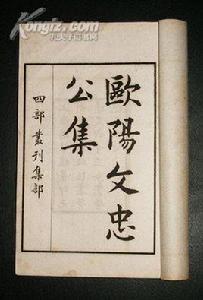 歐陽文忠
公集
四部叢刊集部